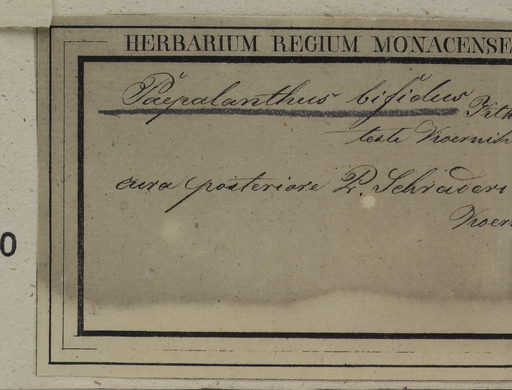 HERBARIUM REGIUM MONACENSE
Paepalanthus bifidus Kth
teste Koernik
cura posteriore P. Schraderi
Koer
0